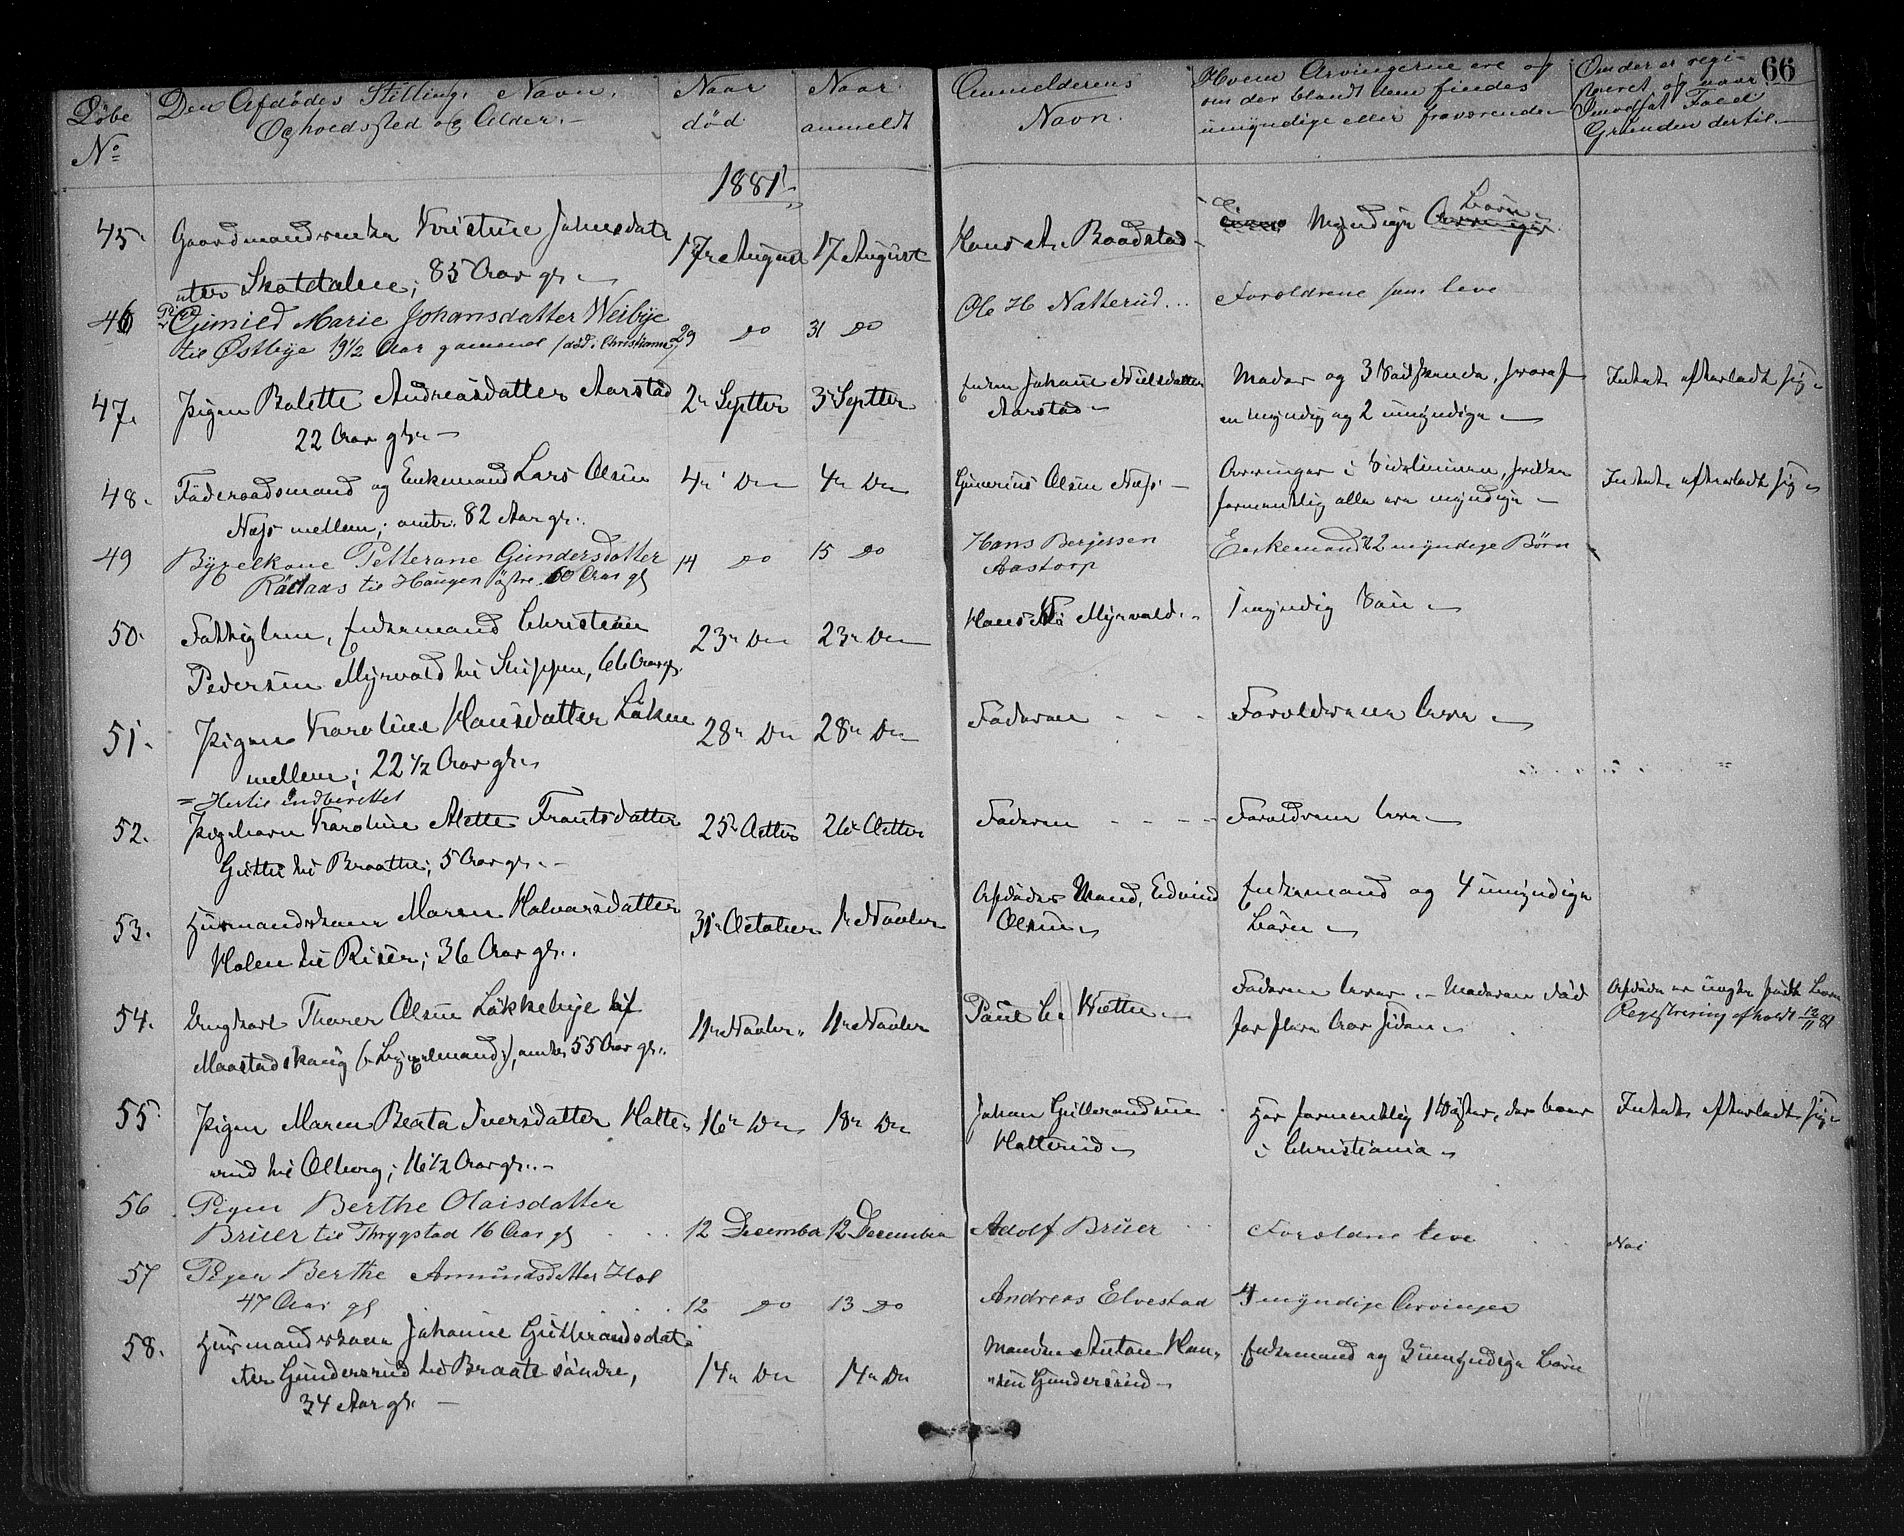 66
Løbe
No
Den Afdødes Stilling, Navn,
Opholdssted og Alder.
Naar
død
Naar
anmeldt
Anmelderens
Navn.
Hvem Arvingerne ere og
om der blandt dem findes
umyndige eller fraværende
Om der er regi-
streret, og naar
Imodsat Fald
Grunden dertil.
1881
45. Gaardmandsenke Kristine Johnsdat-
ter Skotdalen; 85 Aar gl.
17r August 17 August
Hans A. Baadstad
Myndige Børn
46 Pigen Gunild Marie Johansdatter Weibye
til Østbye 19 1/2 Aar gammel /død i Christiania/
29 do 31 do
Ole H Natterud
Forældrene som leve
47. Pigen Bolette Andreasdatter Aarstad
22 Aar gl.
2r Septbr 3r Septbr
Enken Johane Nielsdatter
Aarstad
Moder og 3 Sødskende, hvoraf
en myndig og 2 umyndige
Intet efterladt sig
48. Føderaadsmand og Enkemand Lars Olsen
Næss mellem; omtr. 82 Aar gl.
4r Do 4r Do
Gunerius Olsen Næss
Arvinger i Sidelinien, hvilke
formentlig alle ere myndige
Intet efterladt sig
49 Bygselkone Petterane Gundersdatter
Rødaas til Haugen østre 60 Aar gl
14 do 15 do
Hans Berjessen
Aastorp
Enkemand & 2 myndige Børn
50. Fattiglem, Enkemand Christian
Pedersen Myrvold til Skippen, 66 Aar gl.
23r Do 23r Do
Hans Myrvold
1 myndig Søn
51. Pigen Karoline Hansdatter Løken
mellem; 22 1/2 Aar gl.
28r Do 28r Do
Faderen
Forældrene leve
= Hertil indberettet
52. Pigebarn Karoline Alette Frantsdatter
til Braathe; 5 Aar gl.
25r Octbr 26r Octbr
Faderen
Forældrene leve
53. Husmandskone Maren Halvorsdatter
Holen til Risen; 36 Aar gl.
31r October 1r Novbr
Afdødes Mand, Edvind
Olsen
Enkemand og 4 umyndige
Børn
54. Ungkarl Thorer Olsen Løkkebye til
Maastadskaug (: Bygselmand:), omtr. 55 Aar gl.
11r Novbr. 11r Novbr
Paul C. Wætten
Faderen lever. - Moderen død
for flere Aar siden
Afdøde er uægte født Barn
Registrering afholdt 12/11 81
55. Pigen Maren Beata Iversdatter Hatte-
rud til Ølberg; 16 1/2 Aar gl.
16r Do 18r Do
Johan Gulbrandsen
Hatterud
Har formentlig 1 Søster, der boer
i Christiania
Intet efterladt sig
56 Pigen Berthe Olaisdatter
Bruer til Thrygstad 16 Aar gl
12 Decembr 12 December
Adolf Bruer
Forældrne leve
Nei
57 Pigen Berthe Amundsdatter Hol
47 Aar gl
12 do 13 do
Andreas Elvestad
4 myndige Arvinger
58. Husmandskone Johanne Gulbrandsdat-
ter Gundersrud til Braate søndre,
34 Aar gl.
14r Do 14r Do
Manden Anton Han-
sen Gundersrud
Enkemand og 3 umyndige Børn